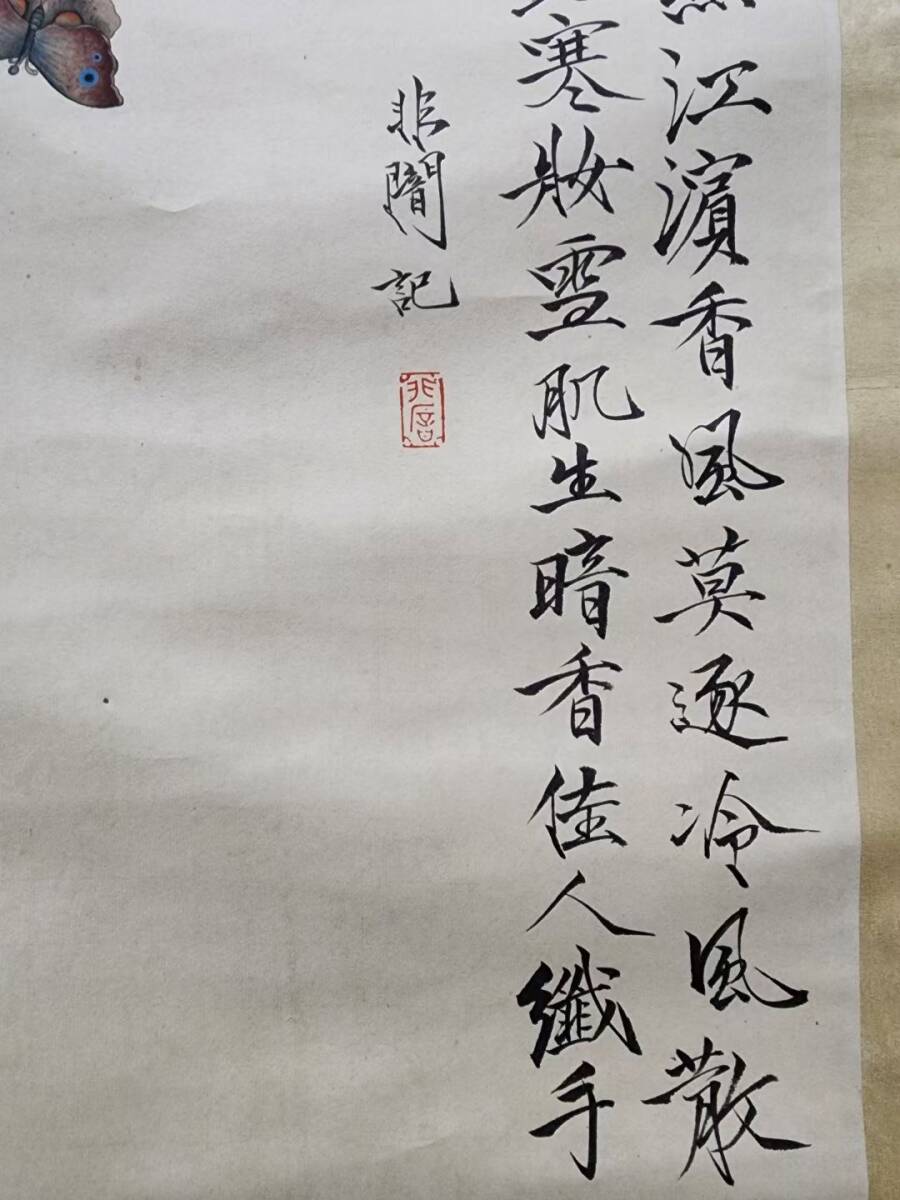 江濵香風莫逐冷風散
寒妝雪肌生暗香佳人纖手
非闇記
非闇